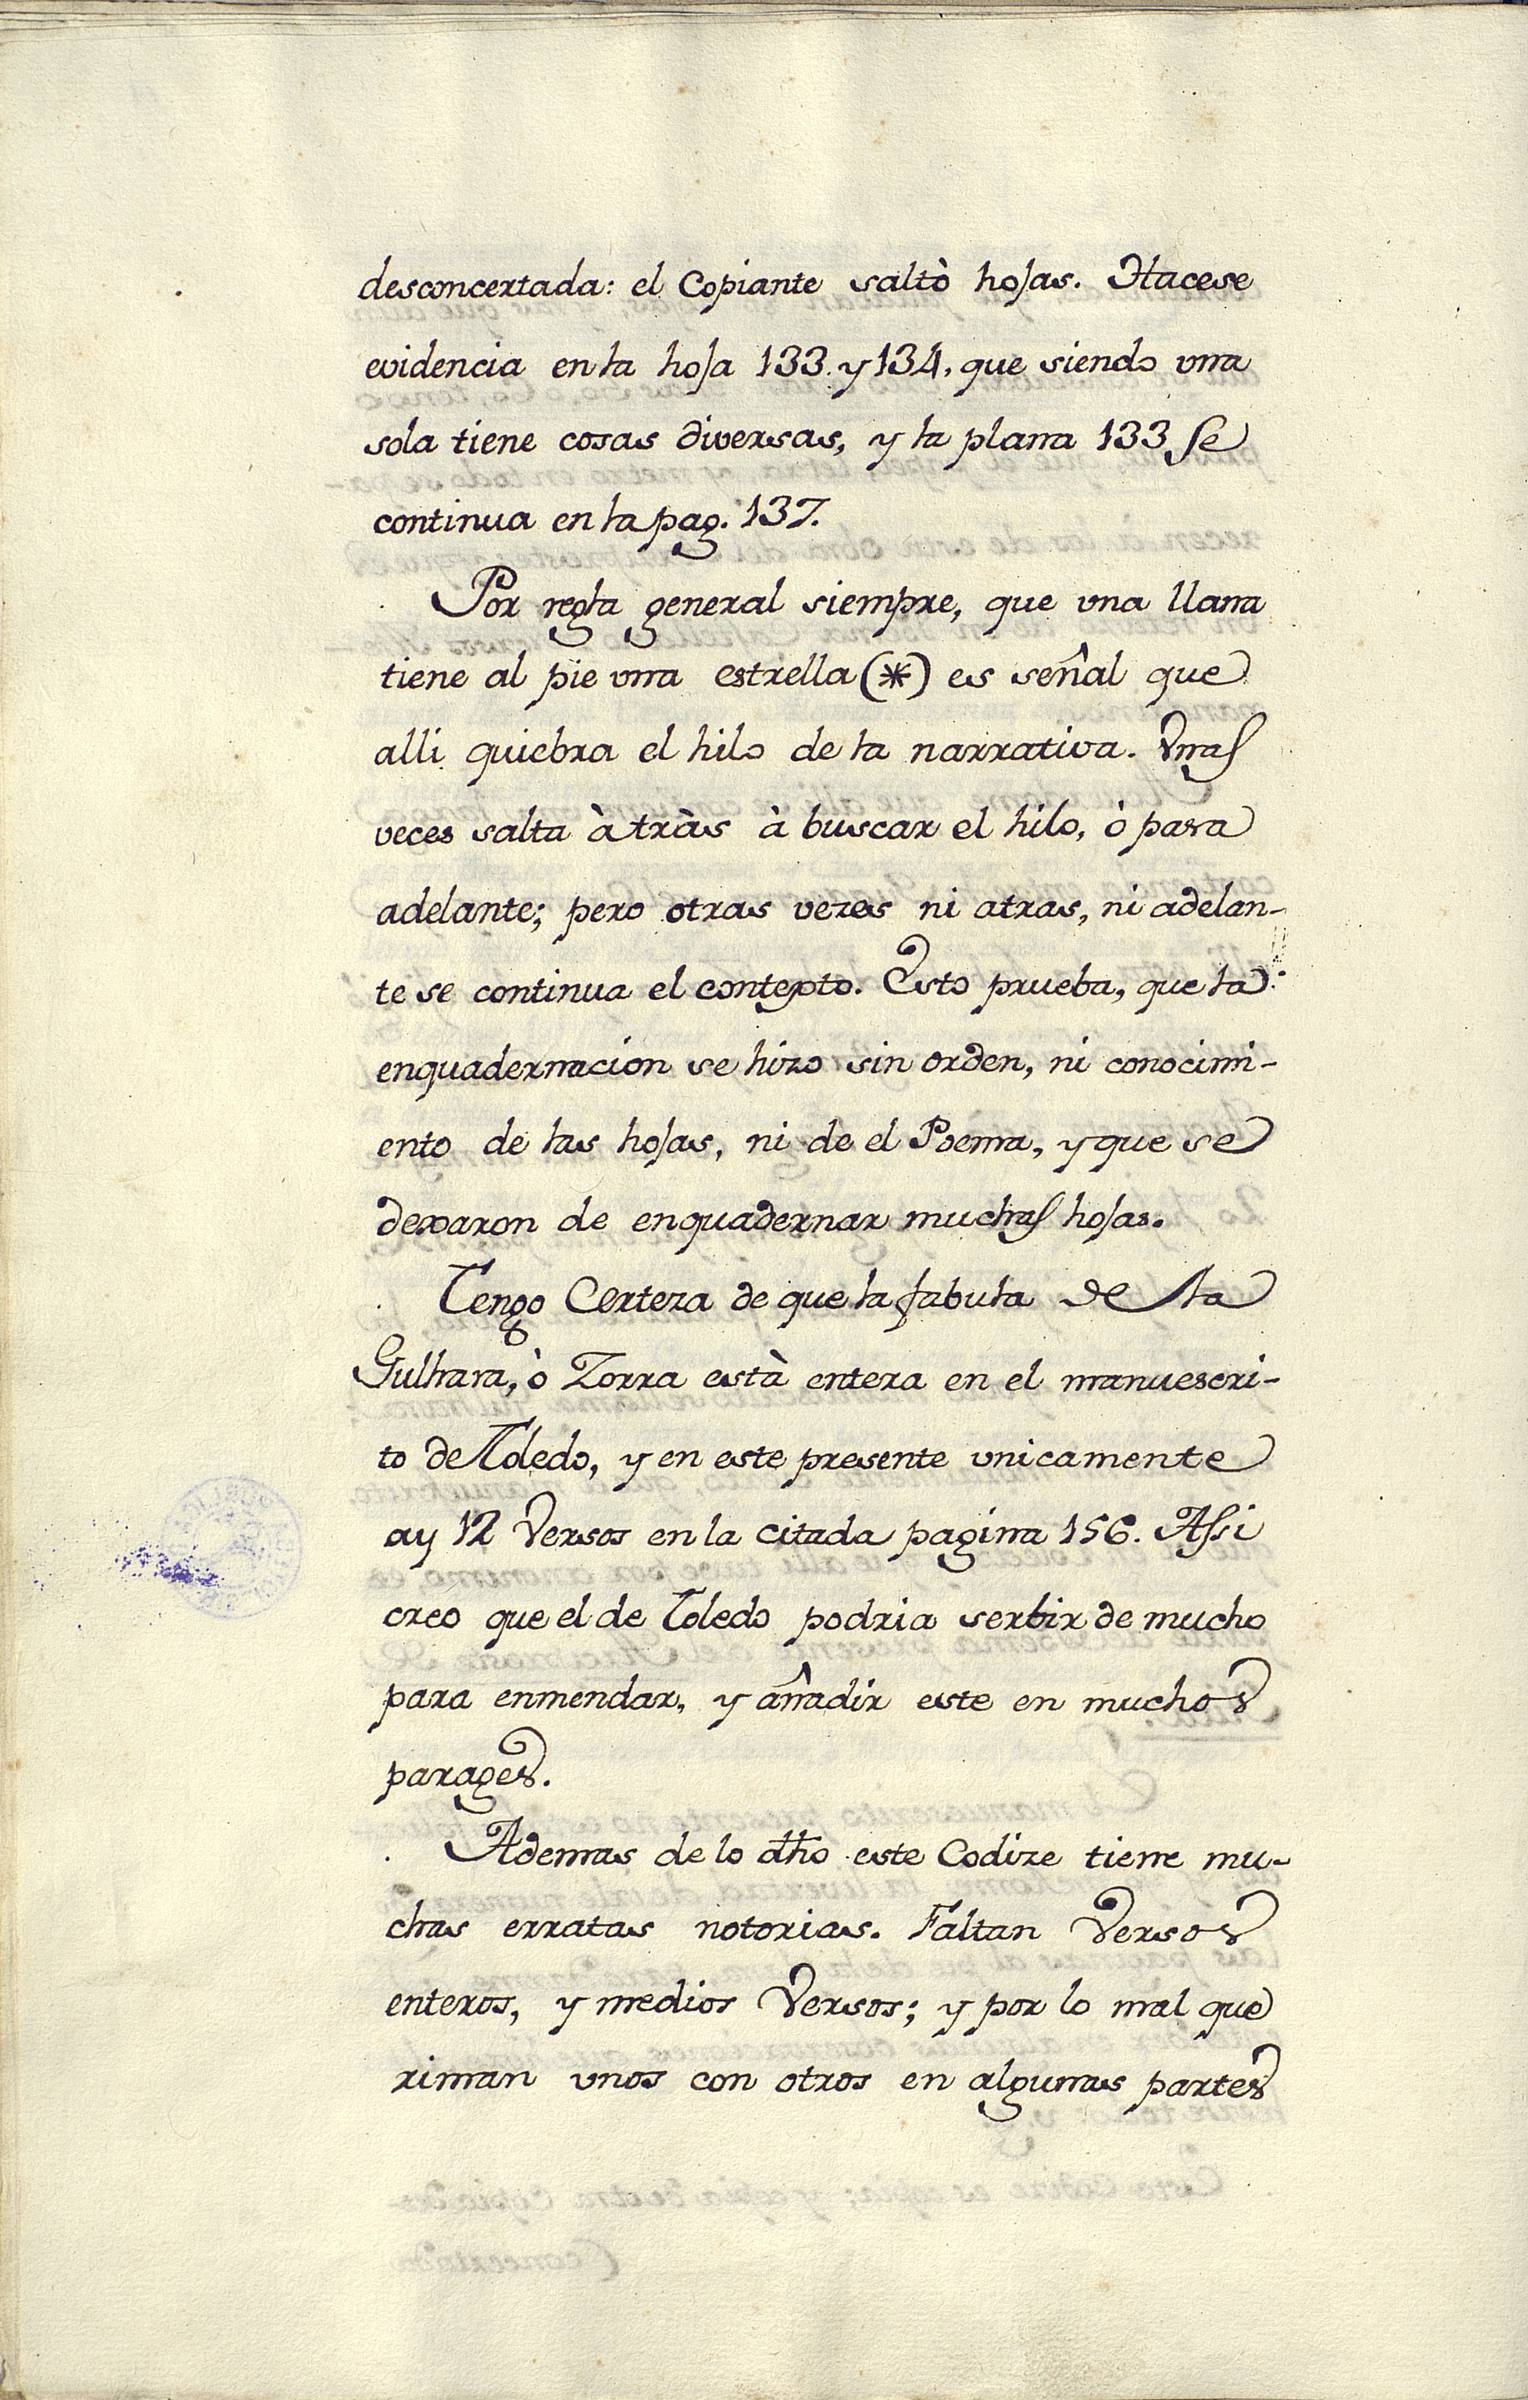 desconcertada: el Copiante saltò hojas. Hacese
evidencia en la hoja 133. y 134, que siendo vna
sola tiene cosas diversas, y la plana 133 se
continua en la pag. 137.
Por regla general siempre, que vna llana
tiene al pie vna estrella (*) es señal que
alli quiebra el hilo de la narrativa. Vnas
veces salta à tràs à buscar el hilo, ò pasa
adelante; pero otras vezes ni atras, ni adelan-
te se continua el contexto. Esto prueba, que la
enquadernacion se hizo sin orden, ni conocimi-
ento de las hojas, ni de el Poema, y que se
dexaron de enquadernar muchas hojas.
Tengo Certeza de que la fabula de la
Gulhara, ò Zorra està entera en el manuescri-
to de Toledo, y en este presente vnicamente
ay 12 Versos en la citada pagina 156. Assi
creo que el de Toledo podria serbir de mucho
para enmendar, y añadir este en muchos
parages.
Ademas de lo dho este Codize tiene mu-
chas erratas notorias. Faltan Versos
enteros, y medios Versos; y por lo mal que
riman vnos con otros en algunas partes